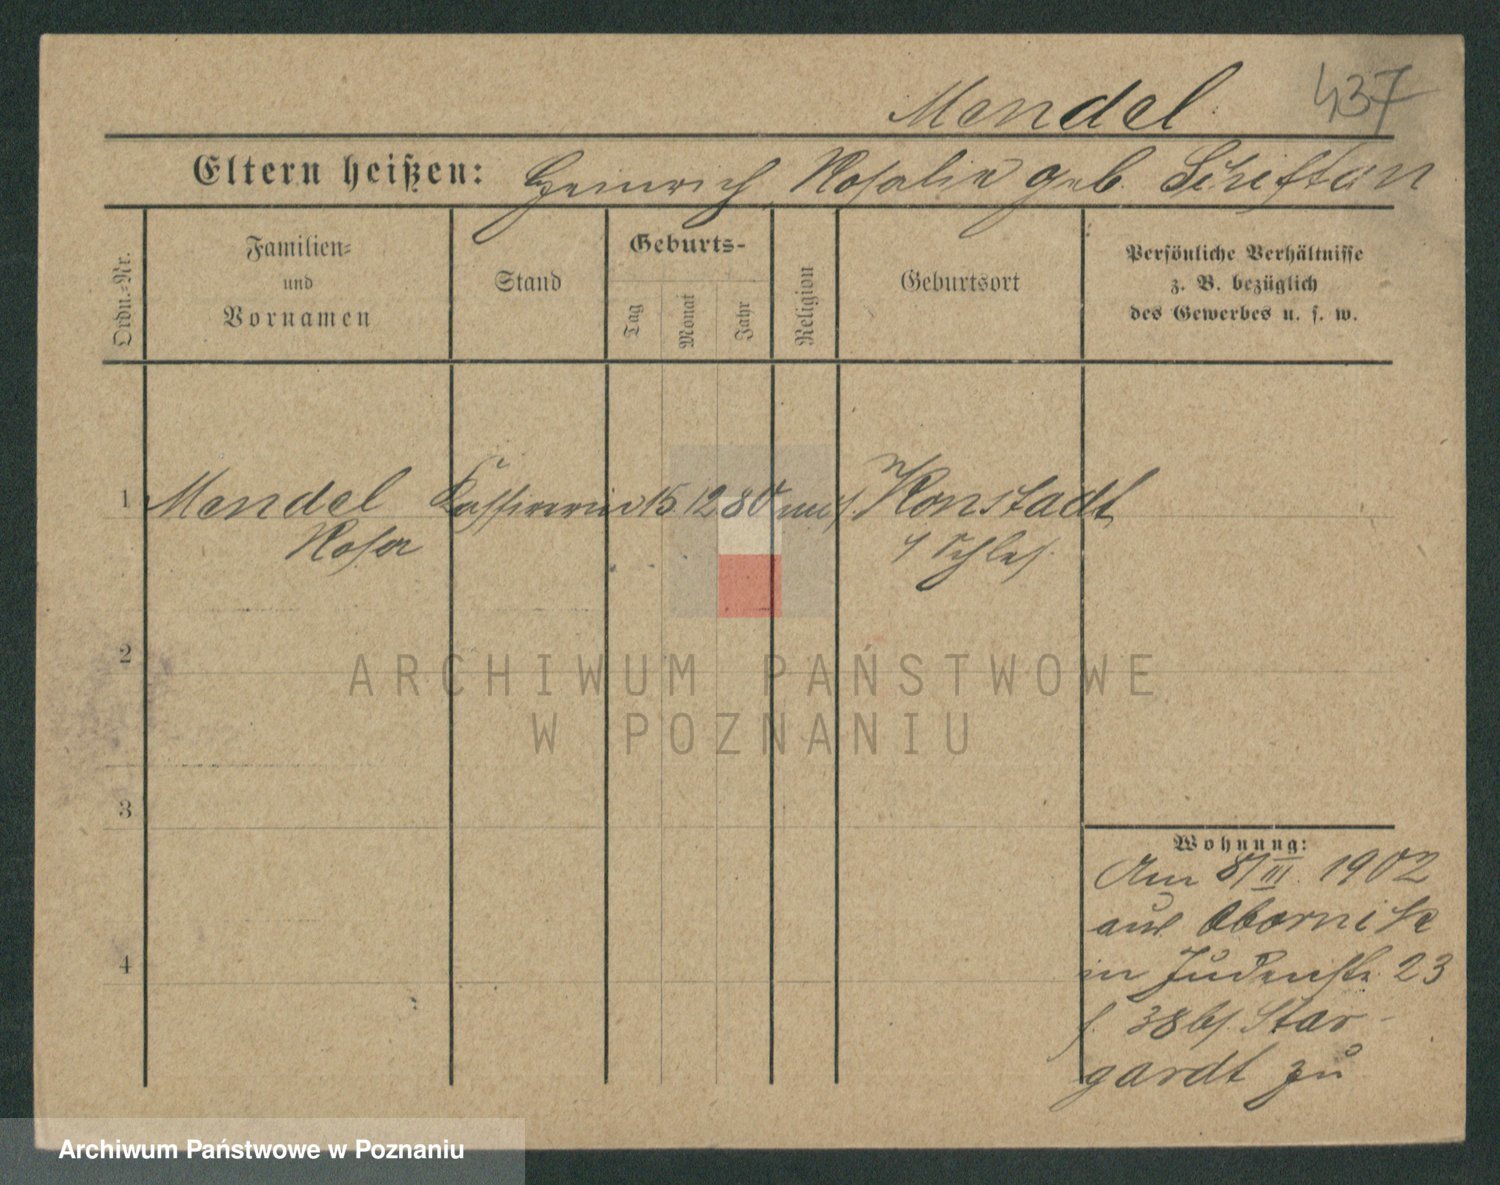 Mendel
437
Eltern heißen: Heinrich, Rosalie geb. Schiftan
Ordn.-Nr.
Familien-
und
Vornamen
Stand
Geburts-
Tag
Monat
Jahr
Religion
Geburtsort
Persönliche Verhältnisse
z. B. bezüglich
des Gewerbes u. s. w.
1 Mendel Kassirerin 15 12 80 mos. Konstadt
Rosa
Schles.
2
ARCHIWUM PAŃSTWOWE
W POZNANIU
3
4
Wohnung:
Am 8/III. 1902
aus Obornik
in Judenstr. 23
Star-
gardt zu
Archiwum Państwowe w Poznaniu